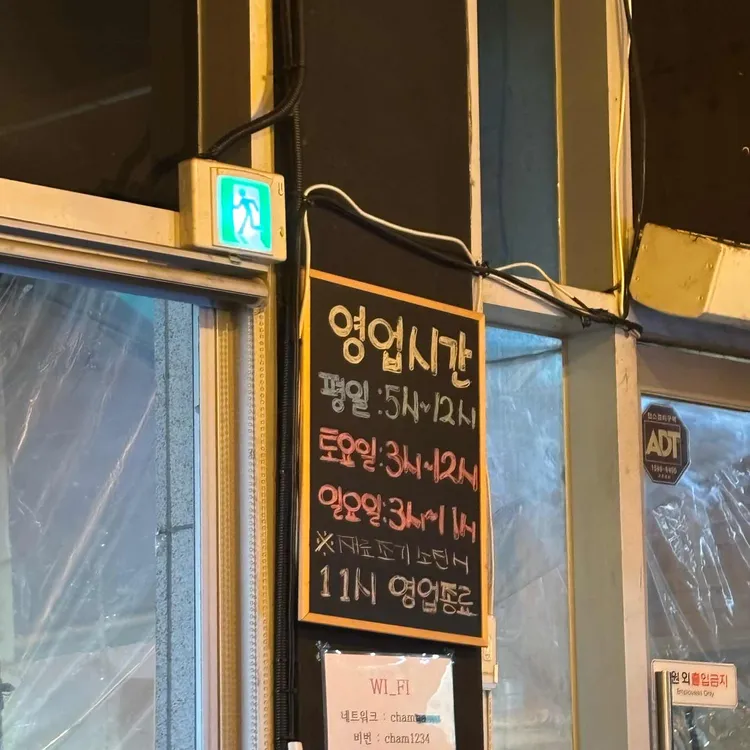 영업시간
평일:5시~12시
토요일:3시~12시
일요일:3시~11시
※재료조기소진시
11시 영업종료
WI_FI
네트워크 :
비번 : cham1234
ADT
원외출입금지
Employees Only